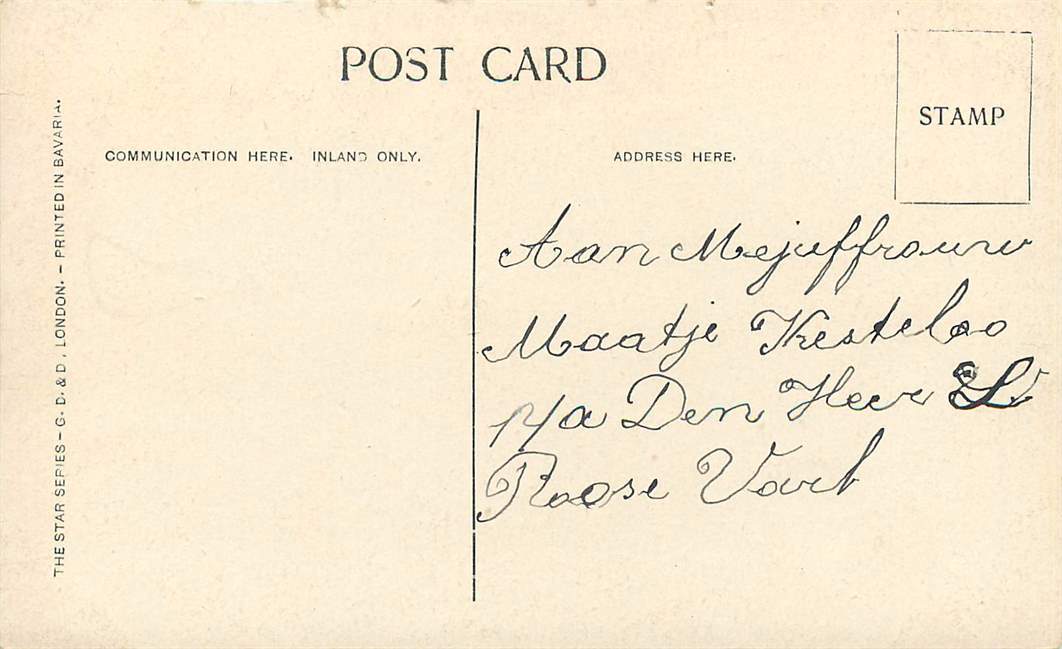 POST CARD
STAMP
COMMUNICATION HERE. INLAND ONLY.
ADDRESS HERE.
THE STAR SERIES – G. D. & D. LONDON. – PRINTED IN BAVARIA.
Aan Mejuffrouw
Maatje Kesteloo
p/a Den Heer
Roose